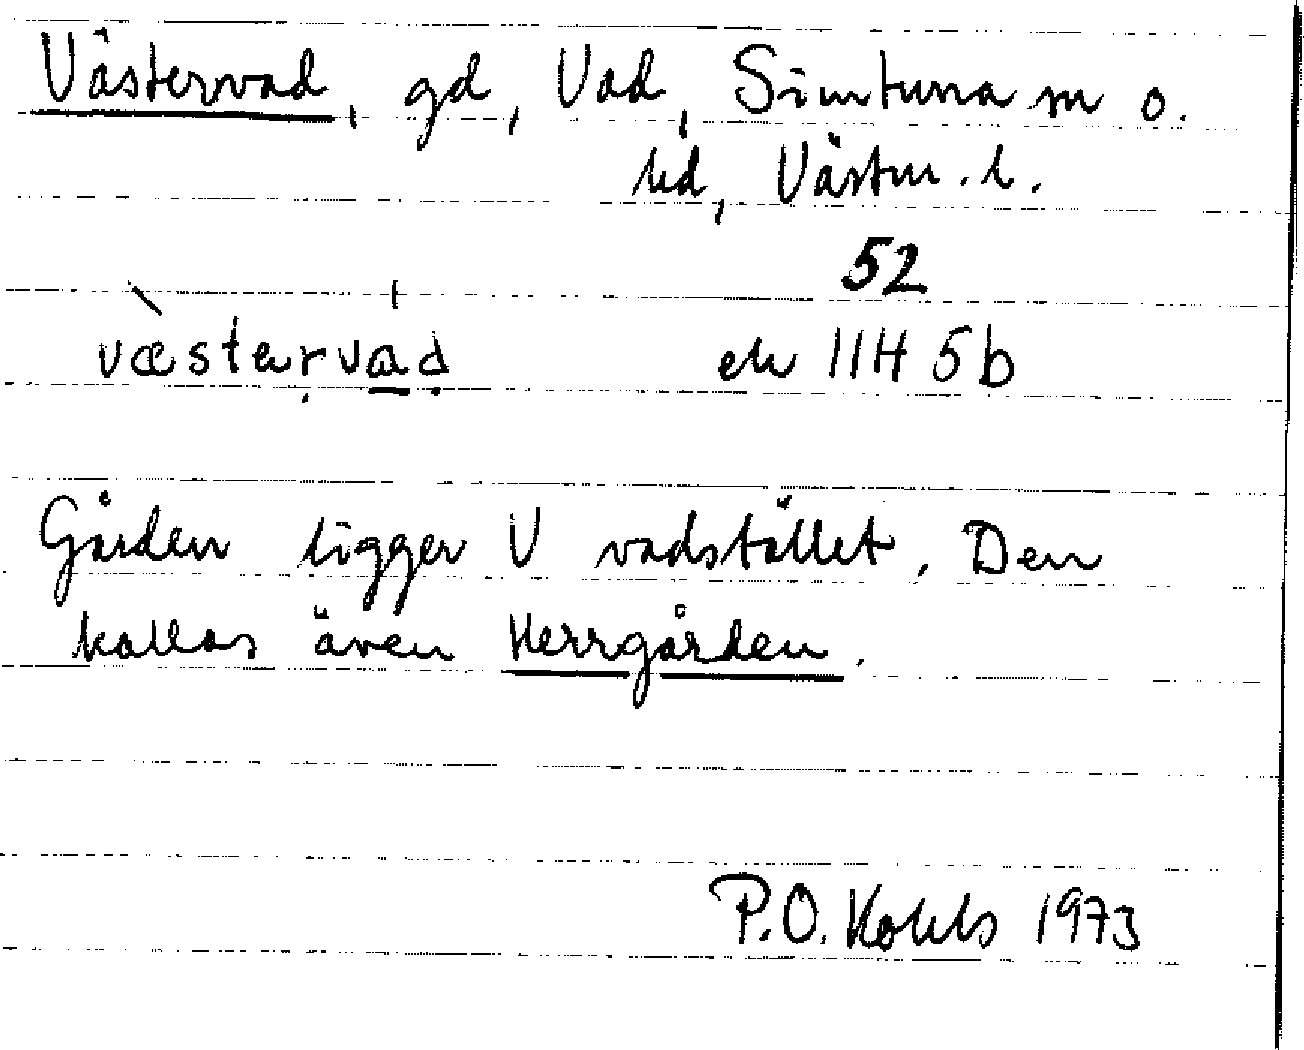 Västervad, gd, Vad, Simtuna sn o.
hd, Västm. l.
52
væstərvad ek 11H 5b
Gården ligger V vadstället. Den
kallas även Herrgården.
P.O. Kohls 1973